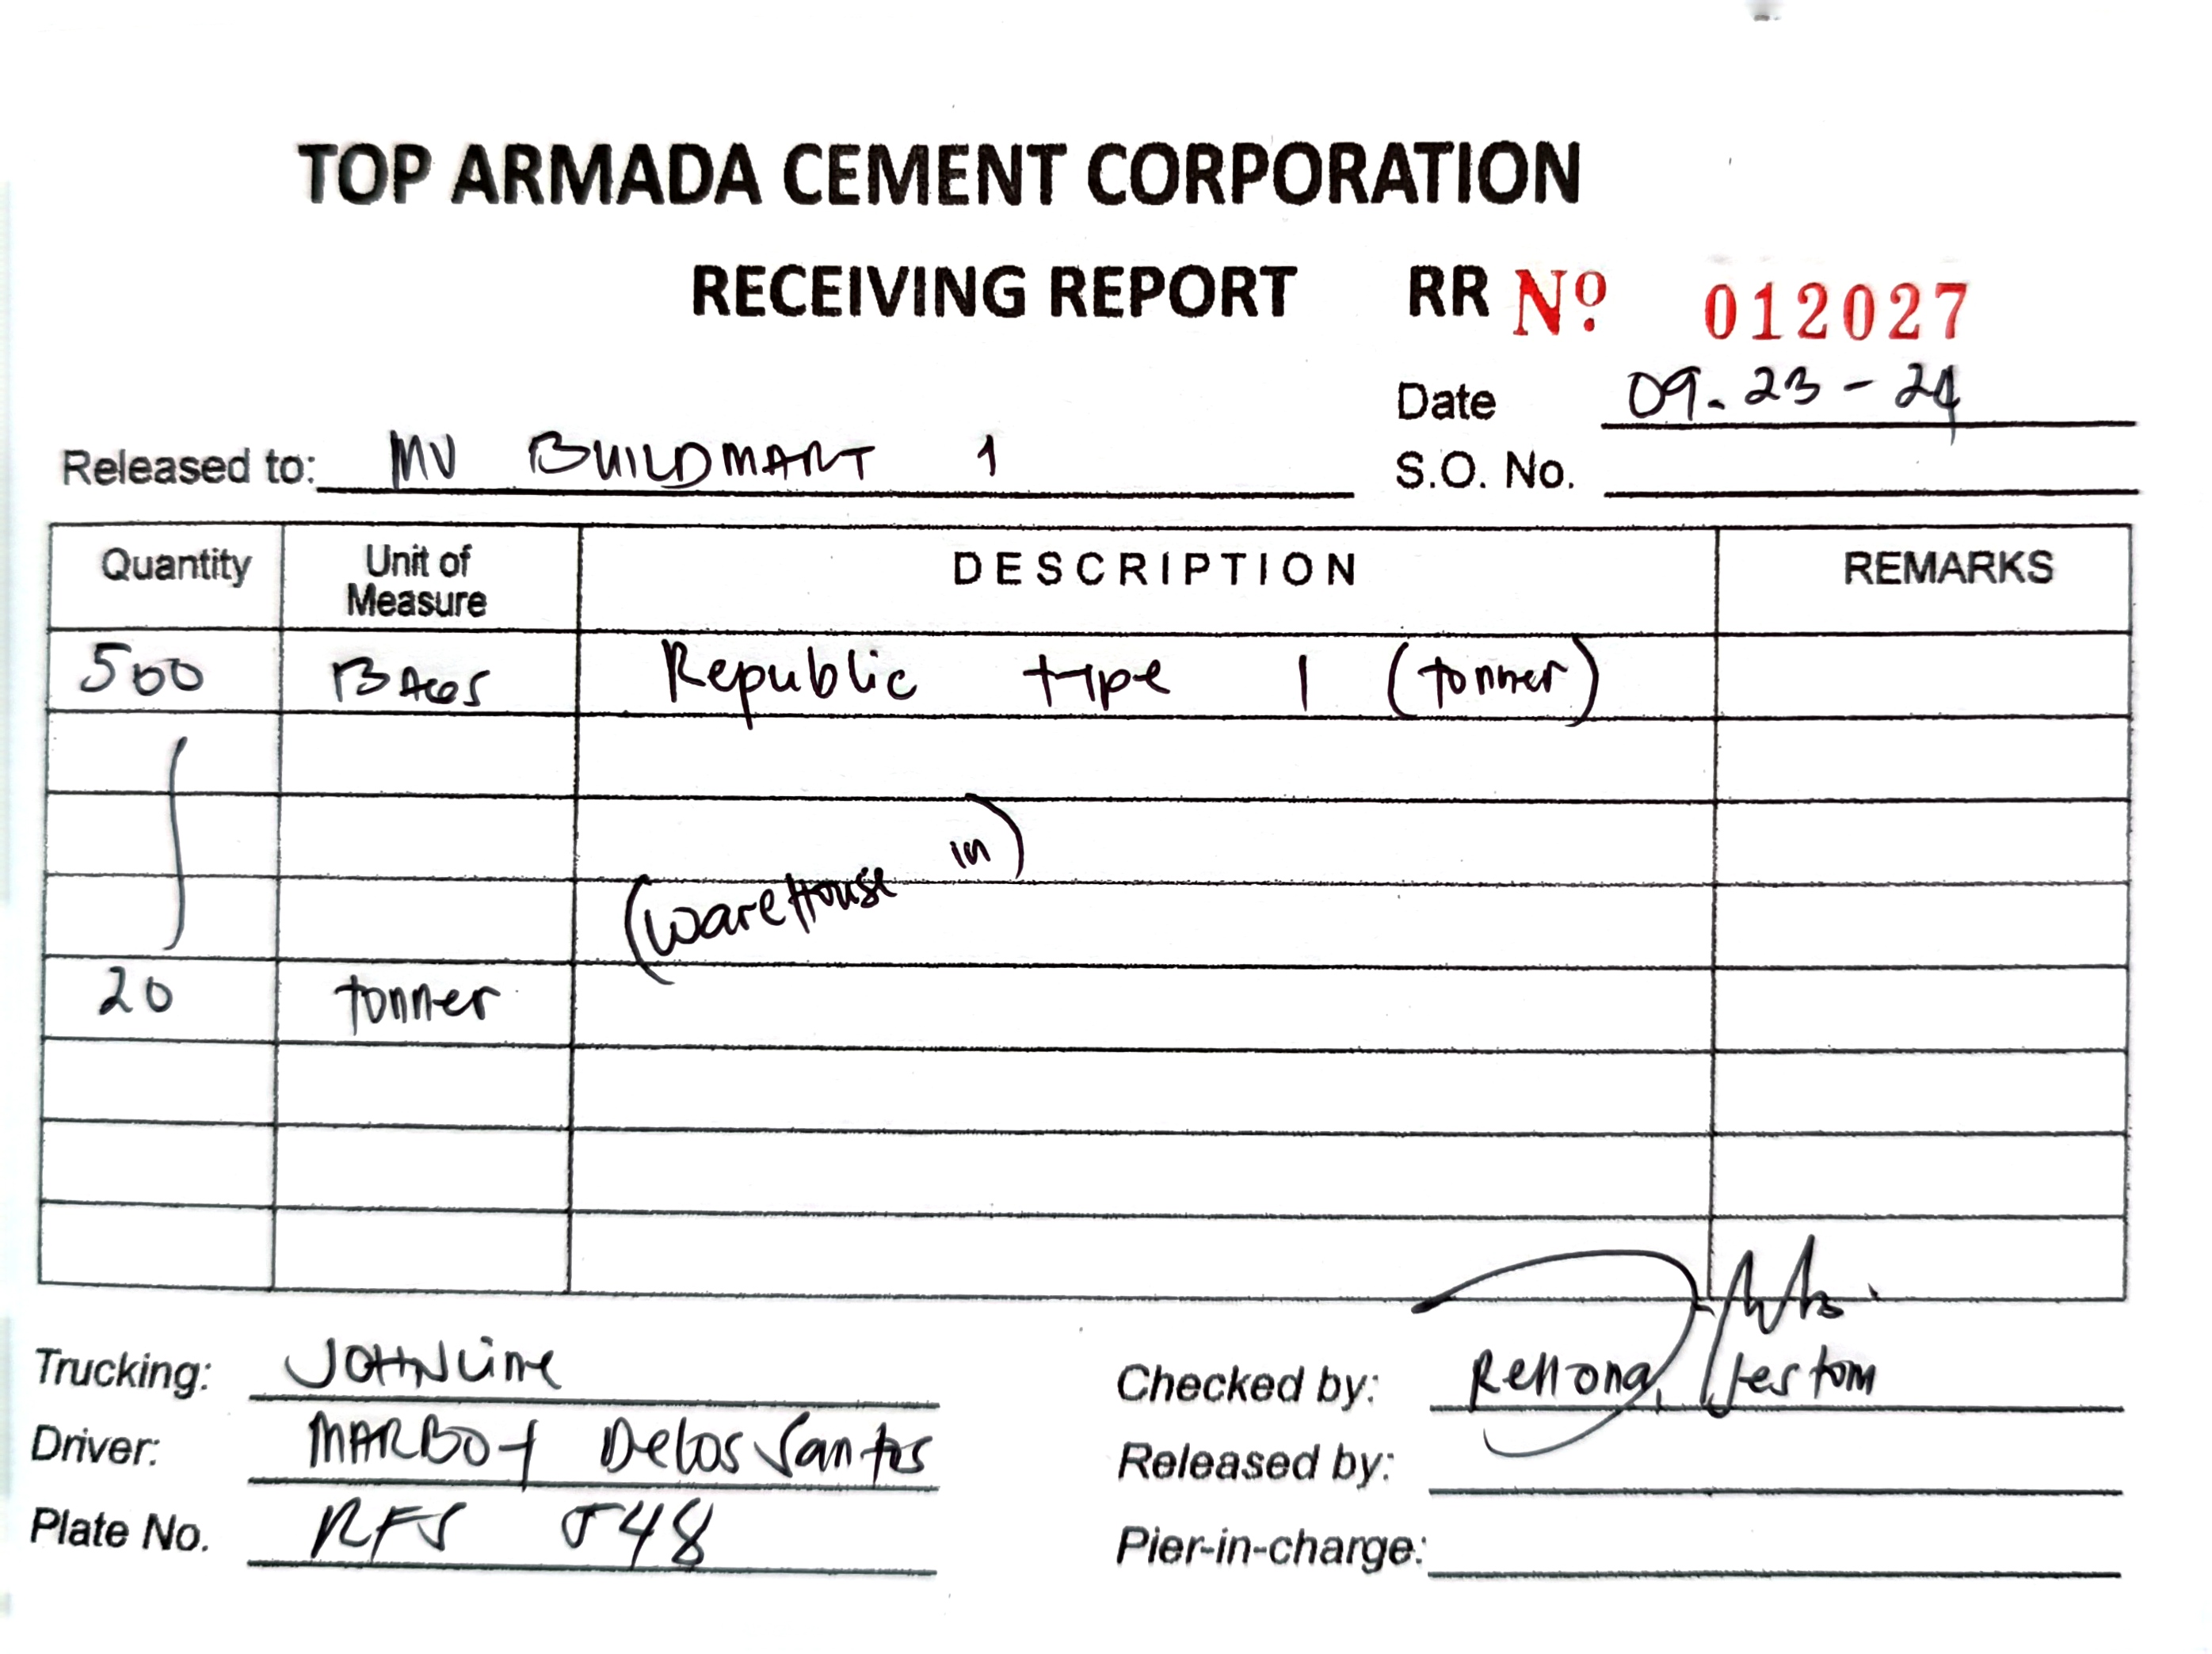 TOP ARMADA CEMENT CORPORATION
RECEIVING REPORT RR Nº 012027
Date 09-23-24
Released to: MV BUILDMART 1
S.O. No.
Quantity Unit of Measure DESCRIPTION REMARKS
500 BAGS Republic type 1 (tonner)
(wareHouse in)
20 tonner
Trucking: JOHNline
Checked by:
Driver: MARBOY Delos Santos
Released by:
Plate No. RFS 548
Pier-in-charge: